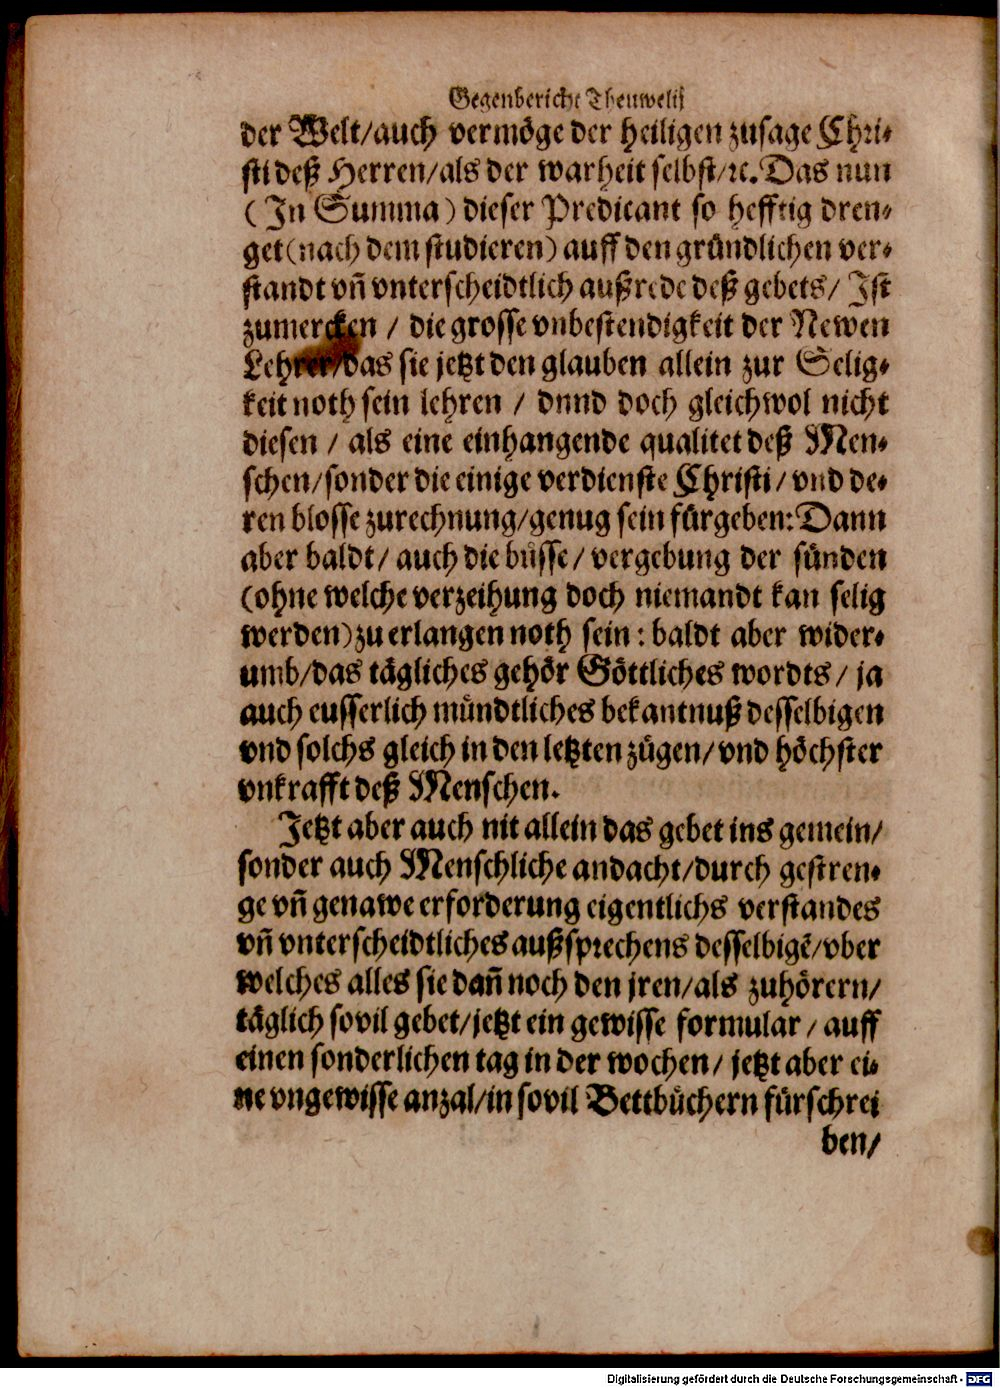 Gegenbericht Theuwelij
der Welt/auch vermöge der heiligen zusage Chri⸗
sti deß Herren/als der warheit selbst/ꝛc. Das nun
(In Summa) dieser Predicant so hefftig dren⸗
get (nach dem studieren) auff den gründlichen ver⸗
standt vñ vnterscheidtlich außrede deß gebets/ Ist
zumercken / die grosse vnbestendigkeit der Newen
Lehrer/das sie jetzt den glauben allein zur Selig⸗
keit noth sein lehren / dnnd doch gleichwol nicht
diesen / als eine einhangende qualitet deß Men⸗
schen/sonder die einige verdienste Christi/ vnd de⸗
ren blosse zurechnung/genug sein fürgeben: Dann
aber baldt/ auch die büsse/ vergebung der sünden
(ohne welche verzeihung doch niemandt kan selig
werden) zu erlangen noth sein : baldt aber wider⸗
umb/das tägliches gehör Göttliches wordts/ ja
auch eusserlich mündtliches bekantnuß desselbigen
vnd solchs gleich in den letzten zügen/ vnd höchster
vnkrafft deß Menschen.
Jetzt aber auch nit allein das gebet ins gemein/
sonder auch Menschliche andacht/durch gestren⸗
ge vñ genawe erforderung eigentlichs verstandes
vñ vnterscheidtliches außsprechens desselbigē/vber
welches alles sie dañ noch den jren/als zuhörern/
täglich sovil gebet/jetzt ein gewisse formular / auff
einen sonderlichen tag in der wochen/ jetzt aber ei⸗
ne vngewisse anzal/in sovil Bettbüchern fürschrei
ben/
Digitalisierung gefördert durch die Deutsche Forschungsgemeinschaft - DFG